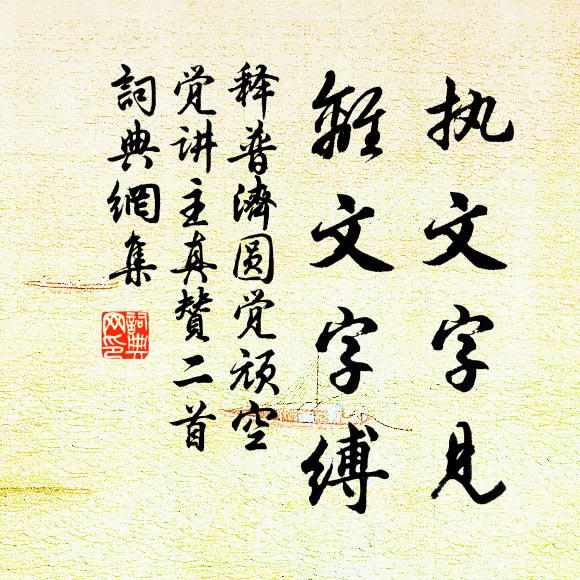 执文字见
离文字缚
释普济圆觉顽空
觉讲主真赞二首
词典网集
词典网印